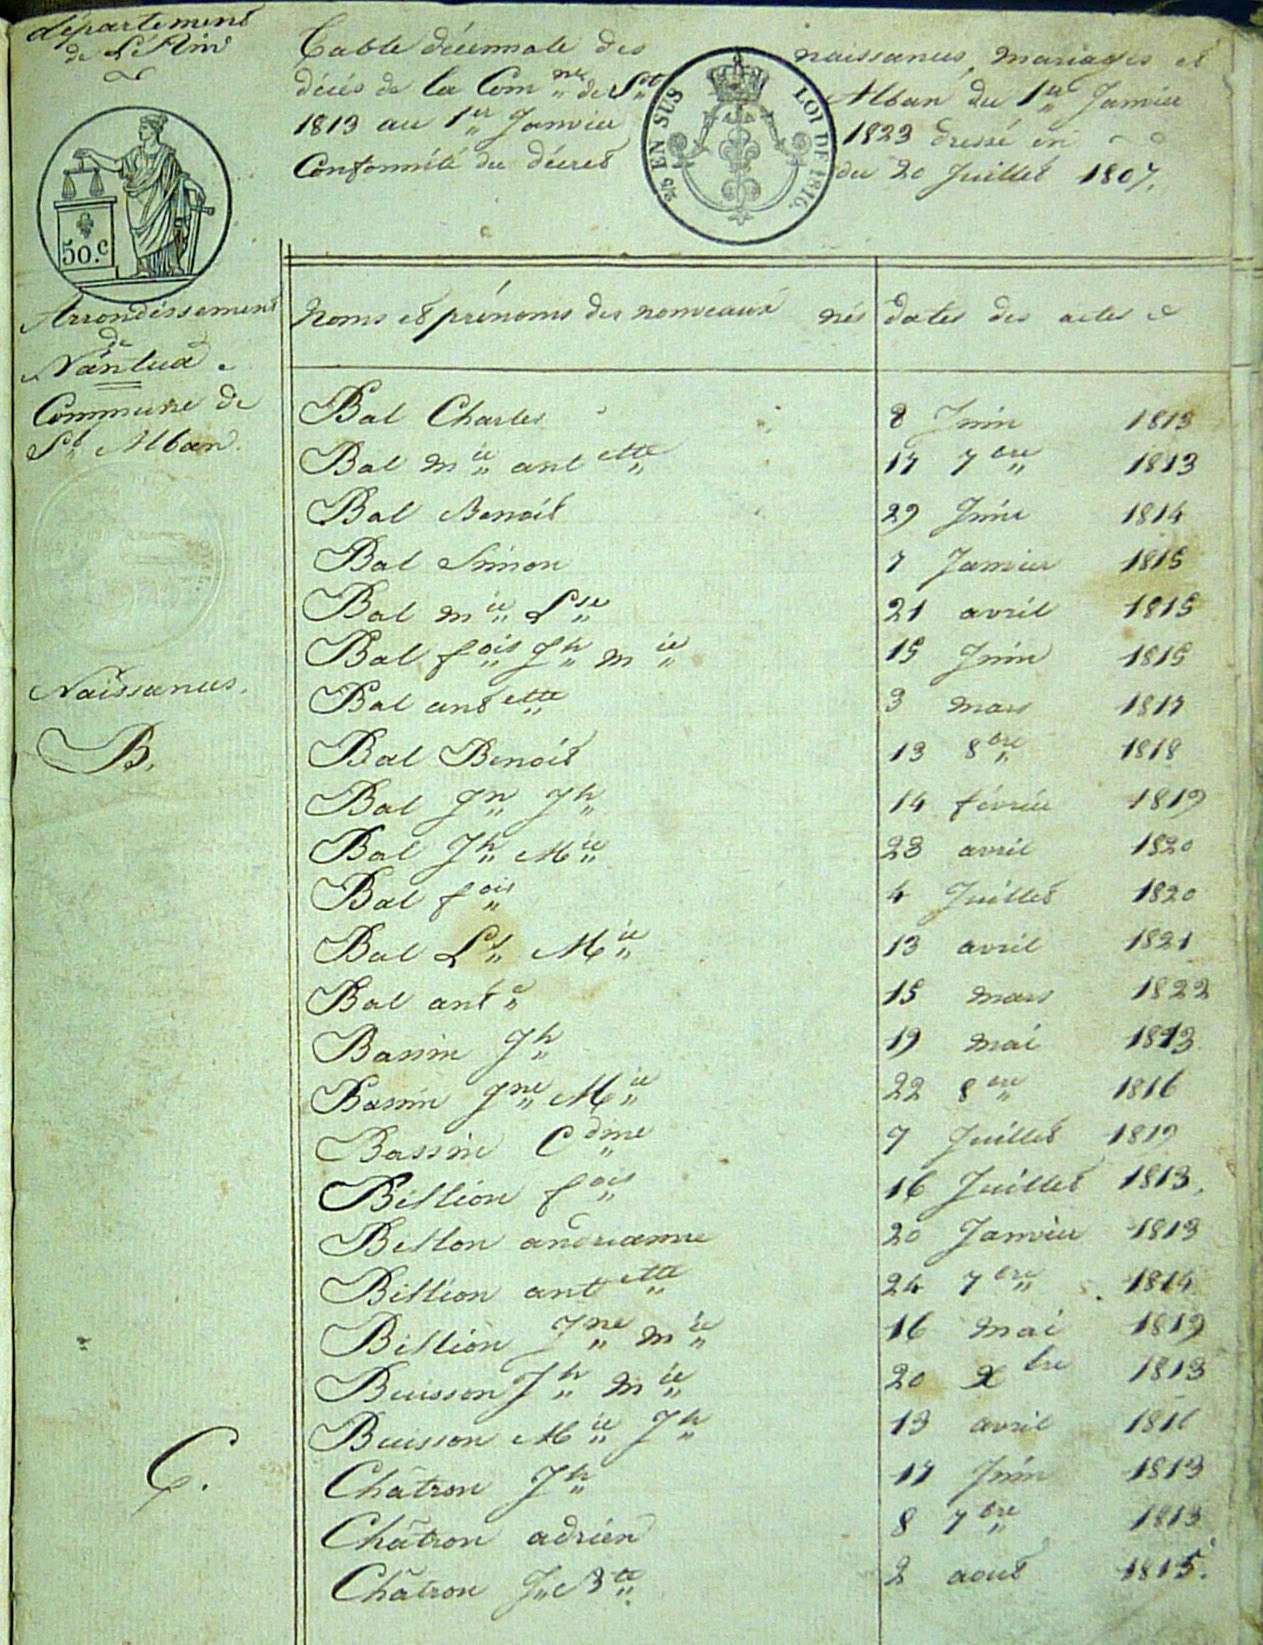 département
de L'Ain
Table décennale des naissances, mariages et
décès de la Com.ne de St Alban du 1er Janvier
1813 au 1er Janvier 1823 dressé en
Conformité du décret du 20 Juillet 1807.
EN SUS LOI DE 1816.
50.c
Arrondissement
de
Nantua
Commune de
St Alban.
Noms et prénoms des nouveaux nés dates des actes
Naissances.
B.
Bal Charles 8 Juin 1813
Bal mie antette 17 7bre 1813
Bal Benoit 29 Juin 1814
Bal Simon 7 Janvier 1815
Bal mie Lse 21 avril 1815
Bal fois Jh mie 15 Juin 1815
Bal antette 3 mars 1817
Bal Benoit 13 8bre 1818
Bal Jn Jh 14 février 1819
Bal Jh Mie 23 avril 1820
Bal fois 4 Juillet 1820
Bal Ls Mie 13 avril 1821
Bal ante 15 mars 1822
Bassin Jh 19 mai 1813
Bassin Jne Mie 22 8bre 1816
Bassin Cdme 7 Juillet 1819
Billion fois 16 Juillet 1813.
Billon andrianne 20 Janvier 1813
Billion antette 24 7bre 1814
Billion Jne mie 16 mai 1819
Buisson Jh mie 20 xbre 1813
Buisson Mie Jh 13 avril 1816
C.
Châtron Jh 17 Juin 1813
Châtron adrien 8 7bre 1813
Châtron J. Bte 2 aout 1815.